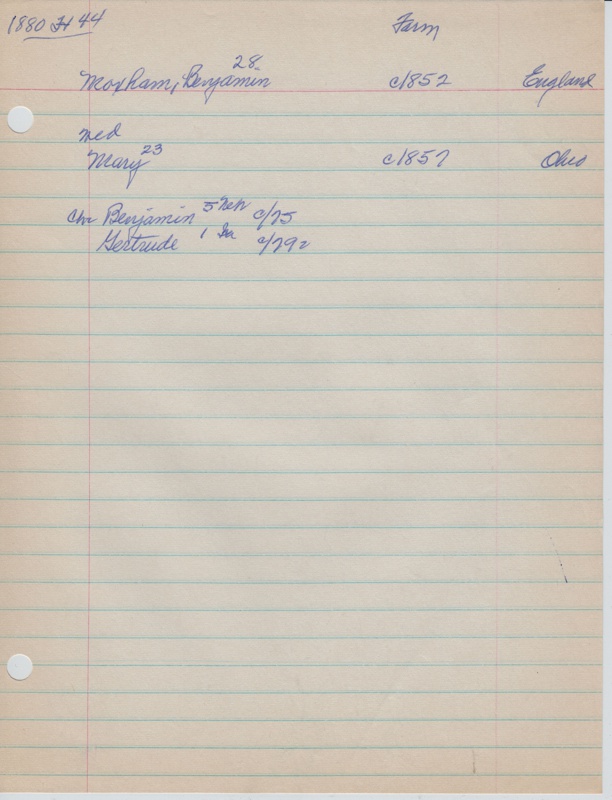 1880 H 44 Farm
Moxham, Benjamin 28 c/1852 England
med
Mary 23 c/1857 Ohio
Chr Benjamin 5 Neb c/75
Gertrude 1 c/79